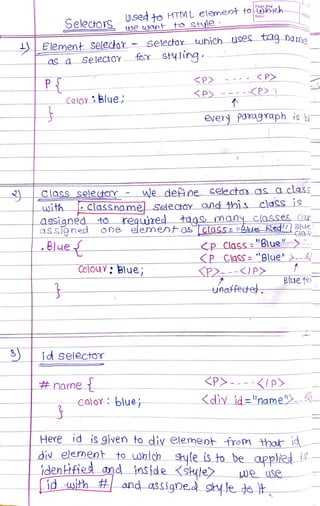 Selectors used to HTML element to which
we want to style.
1) Element selector - selector which uses tag name
as a selector for styling.
P { <P> ---- <P>
color : blue; <P> ----- <P>
}
every paragraph is
2) Class selector - We define selector as a class
with .classname selector and this class is
assigned to required tags many classes can
assigned one element as class = "Blue Red"
.Blue { <P class = "Blue" >
colour : Blue; <P class = "Blue" >
} <P>---</P> Blue
unaffected.
3) id selector
# name { <P>----</P>
color : blue; <div id = "name">
}
Here id is given to div element from that id
div element to which style is to be applied is
identified and inside <style> we use
id with # and assigned style to it.